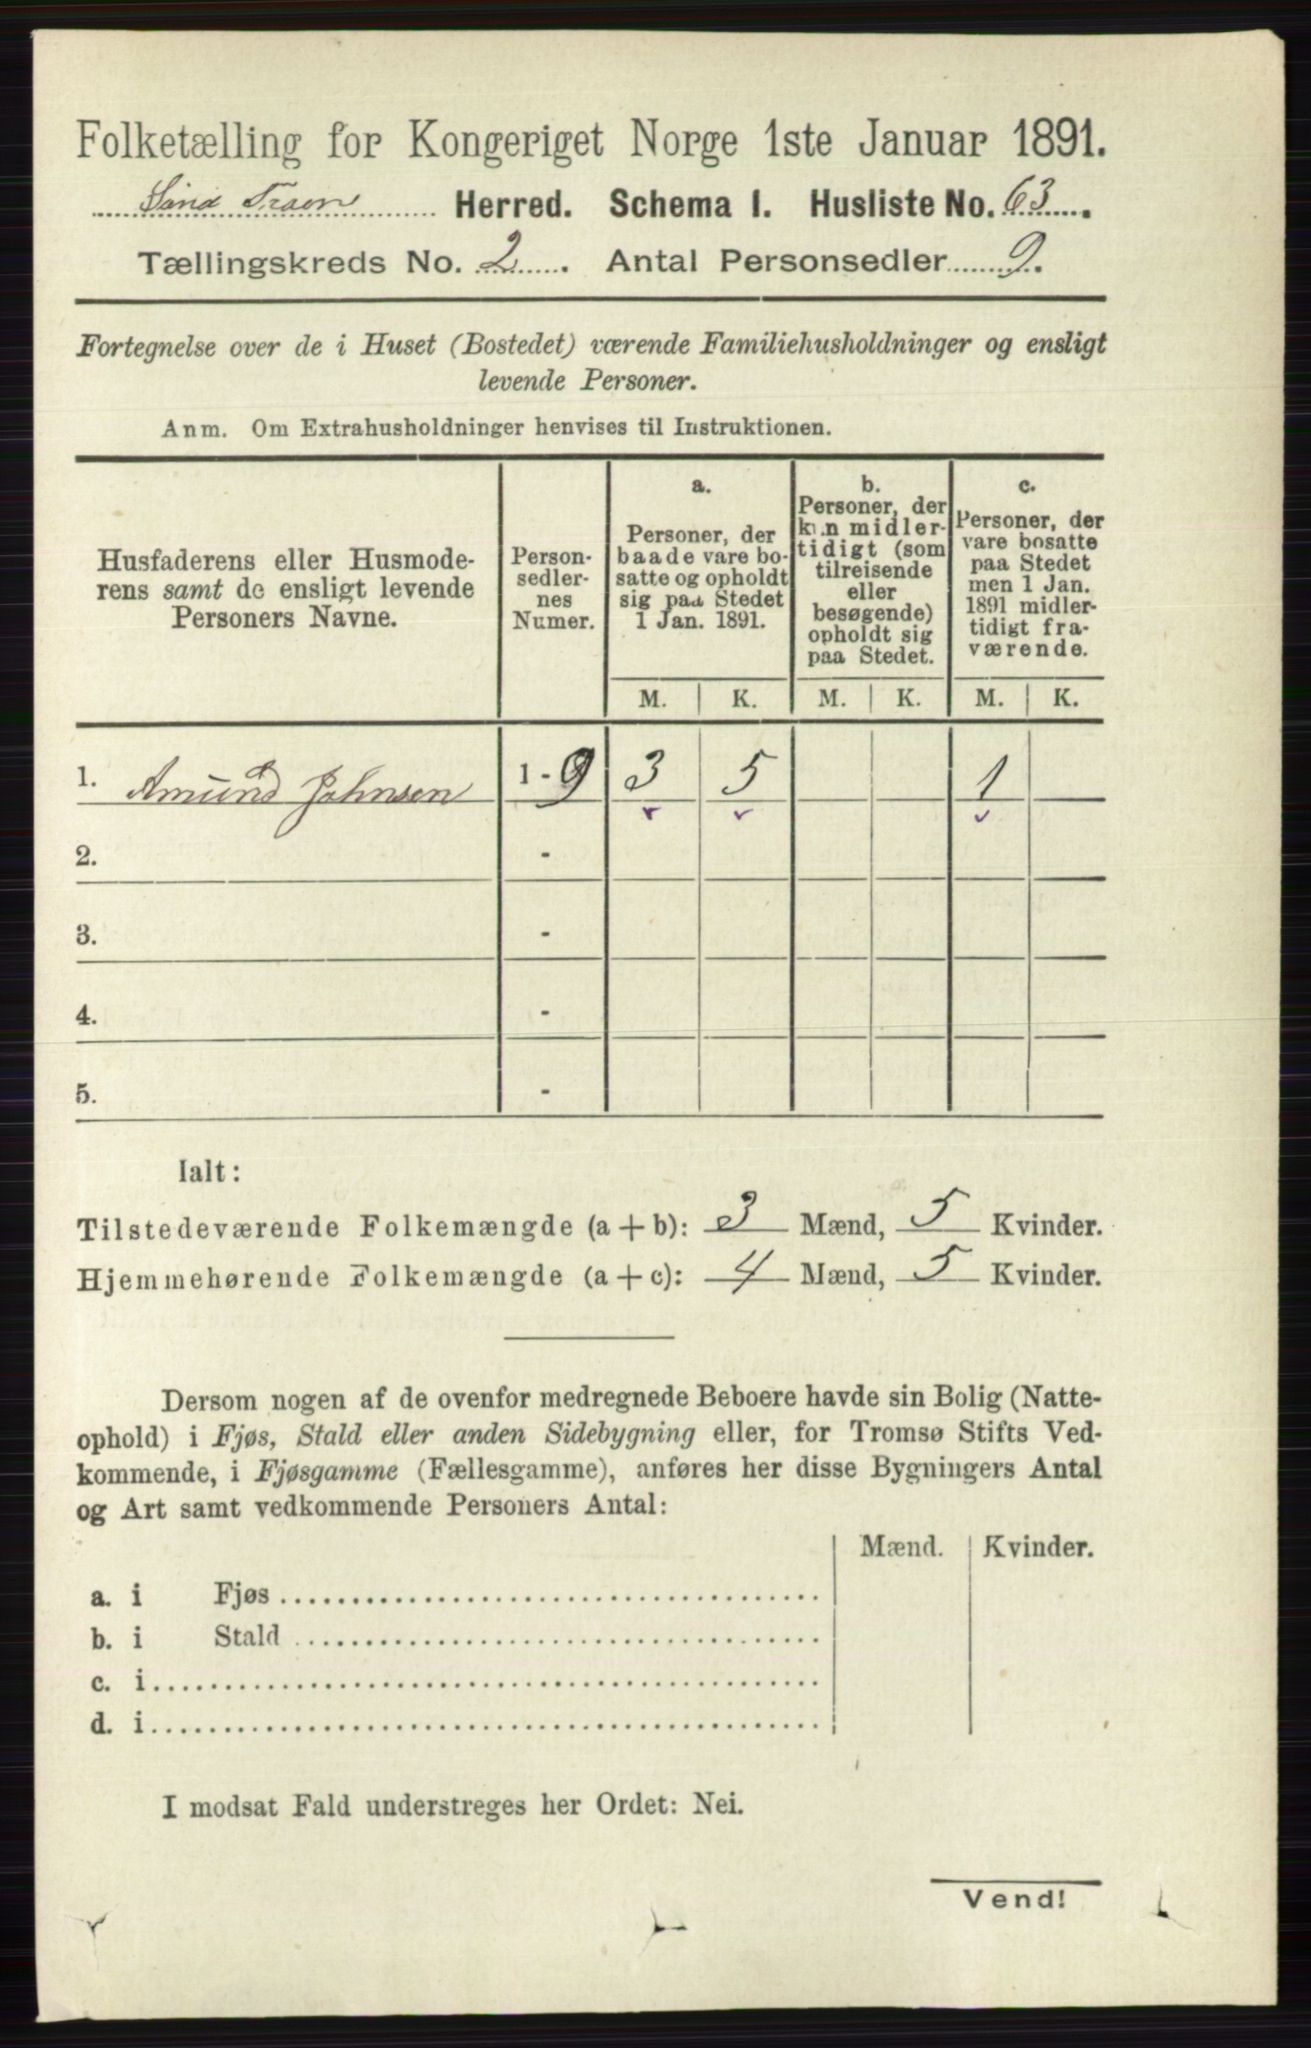 Folketælling for Kongeriget Norge 1ste Januar 1891.
Herred. Schema I. Husliste No. 63.
Tællingskreds No. 2. Antal Personsedler 9.
Fortegnelse over de i Huset (Bostedet) værende Familiehusholdninger og ensligt
levende Personer.
Anm. Om Extrahusholdninger henvises til Instruktionen.
Husfaderens eller Husmode-
rens samt de ensligt levende
Personers Navne.
Person-
sedler-
nes
Numer.
a.
Personer, der
baade vare bo-
satte og opholdt
sig paa Stedet
1 Jan. 1891.
b.
Personer, der
kun midler-
tidigt (som
tilreisende
eller
besøgende)
opholdt sig
paa Stedet.
c.
Personer, der
vare bosatte
paa Stedet
men 1 Jan.
1891 midler-
tidigt fra-
værende.
M. K. M. K. M. K.
1. Amund Johnsen 1 - 9 3 5 1
2. -
3. -
4. -
5. -
Ialt:
Tilstedeværende Folkemængde (a + b): 3 Mænd, 5 Kvinder.
Hjemmehørende Folkemængde (a + c): 4 Mænd, 5 Kvinder.
Dersom nogen af de ovenfor medregnede Beboere havde sin Bolig (Natte-
ophold) i Fjøs, Stald eller anden Sidebygning eller, for Tromsø Stifts Ved-
kommende, i Fjøsgamme (Fællesgamme), anføres her disse Bygningers Antal
og Art samt vedkommende Personers Antal:
Mænd. Kvinder.
a. i Fjøs
b. i Stald
c. i
d. i
I modsat Fald understreges her Ordet: Nei.
Vend!